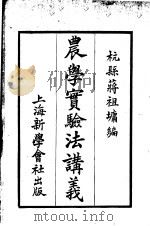 杭縣蔣祖墉編
農學實驗法講義
上海新學會社出版
www.
.com